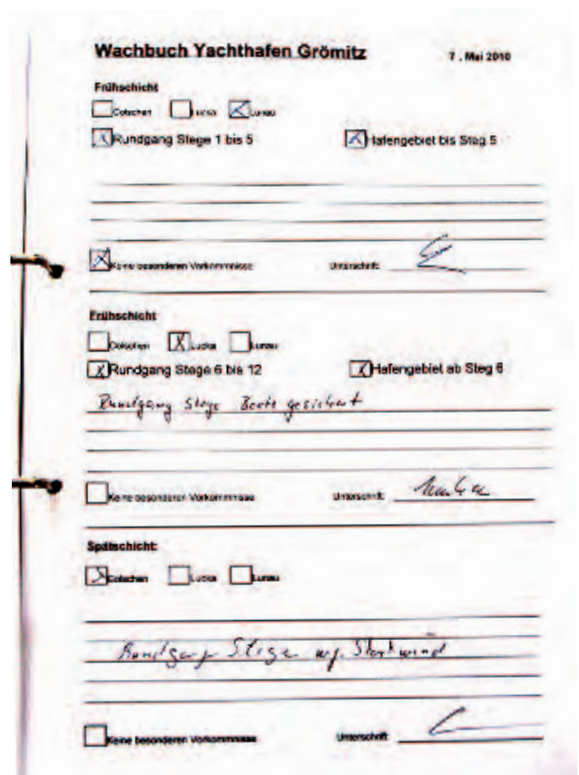 Wachbuch Yachthafen Grömitz 7. Mai 2010
Frühschicht
Cotschen Lucka Lunau
Rundgang Stege 1 bis 5 Hafengebiet bis Steg 5
Keine besonderen Vorkommnisse Unterschrift:
Frühschicht
Cotschen Lucka Lunau
Rundgang Stege 6 bis 12 Hafengebiet ab Steg 6
Rundgang Stege Boote gesichert
Keine besonderen Vorkommnisse Unterschrift:
Spätschicht:
Cotschen Lucka Lunau
Rundgang Stege wg. Starkwind
Keine besonderen Vorkommnisse Unterschrift: